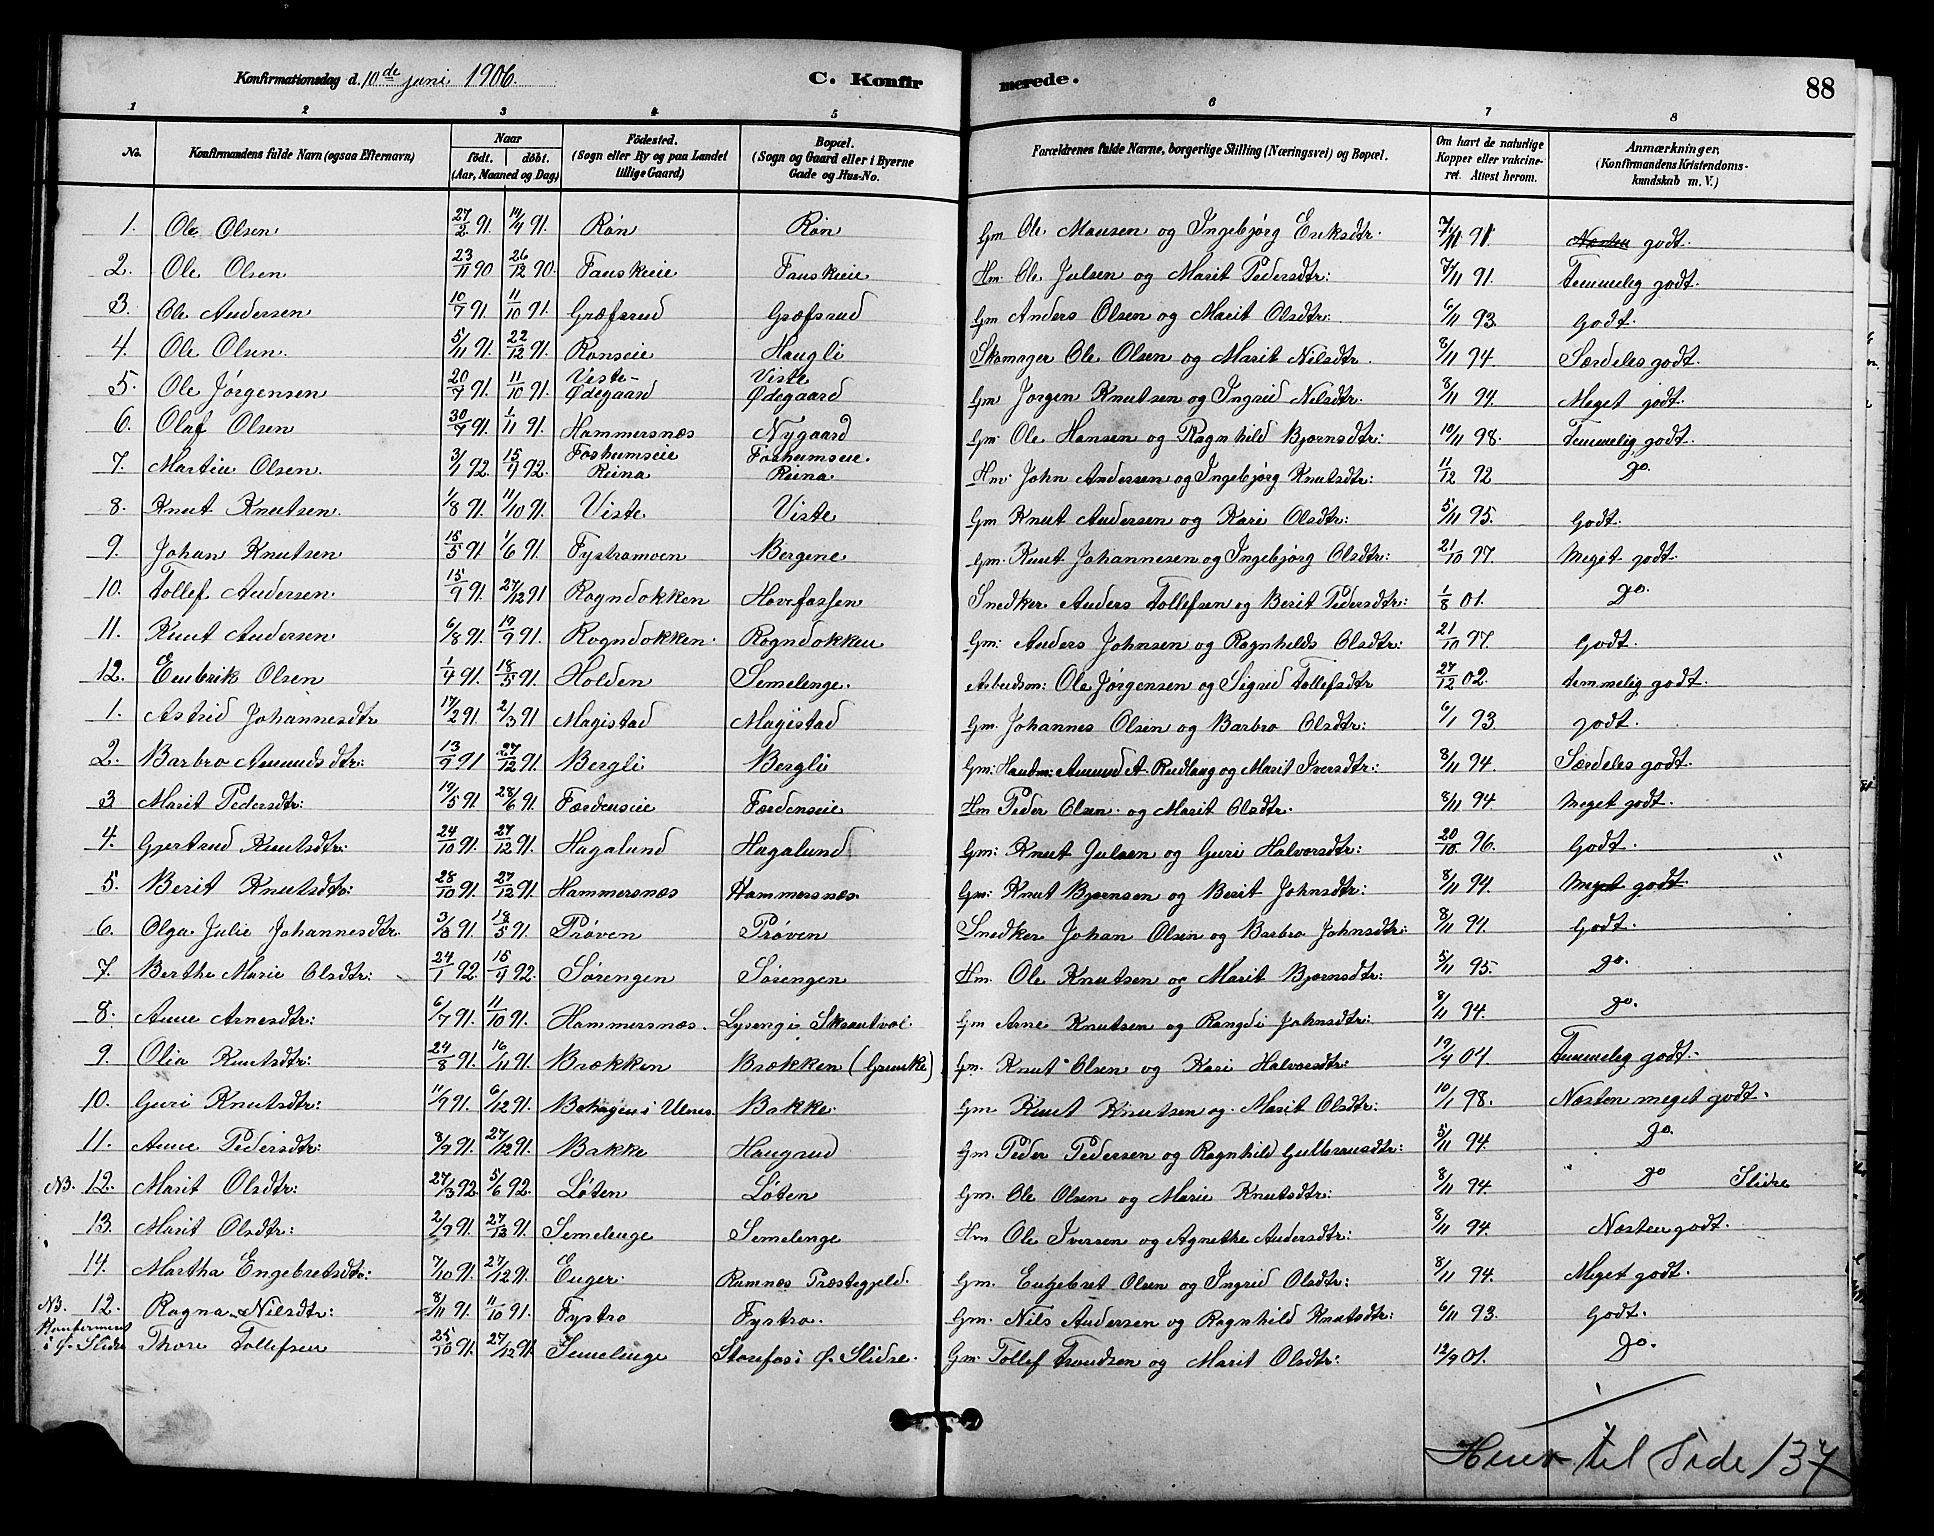 Konfirmationsdag d. 10de juni 1906.
C. Konfirmerede.
88
1 2 3 4 5 6 7 8
No. | Konfirmandens fulde Navn (ogsaa Efternavn) | Naar födt. döbt. (Aar, Maaned og Dag) | Födested. (Sogn eller By og paa Landet tillige Gaard) | Bopæl. (Sogn og Gaard eller i Byerne Gade og Hus-No. | Forældrenes fulde Navne, borgerlige Stilling (Næringsvei) og Bopæl. | Om havt de naturlige Kopper eller vakcineret. Attest herom. | Anmærkninger, (Konfirmandens Kristendomskundskab m. V.)
1. Ole Olsen 27/2 91. 19/4 91. Røn Røn Gm Ole Monsen og Ingebjørg Eriksdtr. 7/11 91. Næsten godt.
2. Ole Olsen 23/11 90 26/12 90. Fauskeie Fauskeie Hm. Ole Julsen og Marit Pedersdtr: 7/11 91. Temmelig godt.
3. Ole Andersen 10/7 91. 11/10 91. Græfsrud Græfsrud Gm Anders Olsen og Marit Olsdtr: 6/11 93. Godt.
4. Ole Olsen. 5/11 91. 22/12 91. Rønseie Haugli Skomager Ole Olsen og Marit Nilsdtr. 8/11 94. Særdeles godt.
5. Ole Jørgensen 20/7 91. 11/10 91. Viste-Ødegaard Viste Ødegaard Gm Jørgen Knutsen og Ingrid Nilsdtr. 8/11 94. Meget godt.
6. Olaf Olsen 30/7 91. 1/11 91. Hammersnæs Nygaard Gm. Ole Hansen og Ragnhild Bjørnsdtr: 10/11 98. Temmelig godt.
7. Martin Olsen. 3/1 92. 15/4 92. Fosheimseie Reina Fosheimseie. Reina Hm. John Andersen og Ingebjørg Knutsdtr: 11/12 92 Do.
8. Knut Knutsen. 1/8 91. 11/10 91. Viste Viste Gm Knut Andersen og Kari Olsdtr: 5/11 95. Godt.
9. Johan Knutsen 15/5 91 1/6 91. Fystromoen Bergene Gm. Knut Johannesen og Ingebjørg Olsdtr: 21/10 97. Meget godt.
10. Tollef Andersen 15/9 91. 27/12 91 Rogndokken Hovefossen Snedker Anders Tollefsen og Berit Pedersdtr: 1/8 01. Do.
11. Knut Andersen 6/8 91. 19/9 91. Rogndokken. Rogndokken Gm: Anders Johnsen og Ragnhilds Olsdtr: 21/10 97. Godt.
12. Embrik Olsen 1/4 91. 18/5 91. Holden Semelenge. Arbeidsm: Ole Jørgensen og Sigrid Tollefsdtr 27/12 02. temmelig godt.
1. Astrid Johannesdtr 17/2 91. 2/3 91 Magistad Magistad Gm. Johannes Olsen og Barbro Olsdtr: 6/1 93 godt.
2. Barbro Amundsdtr: 13/9 91 27/12 91. Bergli Bergli Gm: Handm: Amund A. Rudlang og Marit Iversdtr: 8/11 94. Særdeles godt.
3 Marit Pedersdtr: 19/5 91. 28/6 91. Færdenseie Færdenseie Hm Peder Olsen og Marit Olsdtr. 8/11 94 Meget godt.
4. Gjertrud Knutsdtr: 24/10 91. 27/12 91. Hagalund Hagalund Gm: Knut Julsen og Guri Halvorsdtr: 20/10 96. Godt.
5. Berit Knutsdtr: 28/10 91. 27/12 91. Hammersnæs Hammersnæs. Gm: Knut Bjørnsen og Berit Johnsdtr: 8/11 94. Meget godt
6. Olga Julie Johannesdtr. 3/3 91. 18/5 91. Prøven Prøven Snedker Johan Olsen og Barbro Johnsdtr: 8/11 94. Godt.
7. Berthe Marie Olsdtr: 24/1 92. 18/4 92. Sørengen Sørengen Hm. Ole Knutsen og Marit Bjørnsdtr: 5/11 95. Do.
8. Anne Arnesdtr: 6/7 91. 11/10 91. Hammersnæs. Lysengi Skrautvol. Gm Arne Knutsen og Rangdi Johnsdtr: 8/11 94. Do.
9. Olia Knutsdtr: 24/8 91. 16/11 91. Brækken Brækken ( Grunke) Gm. Knut Olsen og Kari Halvorsdtr: 19/4 04. Temmelig godt.
10. Guri Knutsdtr: 11/9 91. 6/12 91. Behagen i Ulnes. Bakke. Gm Knut Knutsen og Marit Olsdtr: 10/1 98. Næsten meget godt.
11. Anne Pedersdtr: 8/9 91. 27/12 91. Bakke Haugrud Gm Peder Pedersen og Ragnhild Gulbransdtr: 5/11 94. Do.
NB. 12. Marit Olsdtr: 27/3 92. 5/6 92. Løten Løten Gm. Ole Olsen og Marie Knutsdtr: 8/11 94. Do Slidre
13. Marit Olsdtr: 2/9 91. 27/12 91. Semelenge Semelenge Hm Ole Iversen og Agnethe Andersdtr: 8/11 94. Næsten godt.
14. Martha Engebretsdtr: 7/10 91. 27/12 91. Enger. Ramnæs Præstegjeld. Gm. Engebret Olsen og Ingrid Olsdtr: 8/11 94. Meget godt.
NB. 12. Ragna Nilsdtr: 8/11 91. 11/10 91. Fystro Fystro. Gm. Nils Andersen og Ragnhild Knutsdtr: 6/11 93. Godt.
Konfermeret i Ø. Slidre Thore Tollefsen 25/10 91. 27/12 91. Semelenge Storefos i Ø. Slidre. Gm. Tollef Trondsen og Marit Olsdtr: 12/9 01. Do.
til Side 137